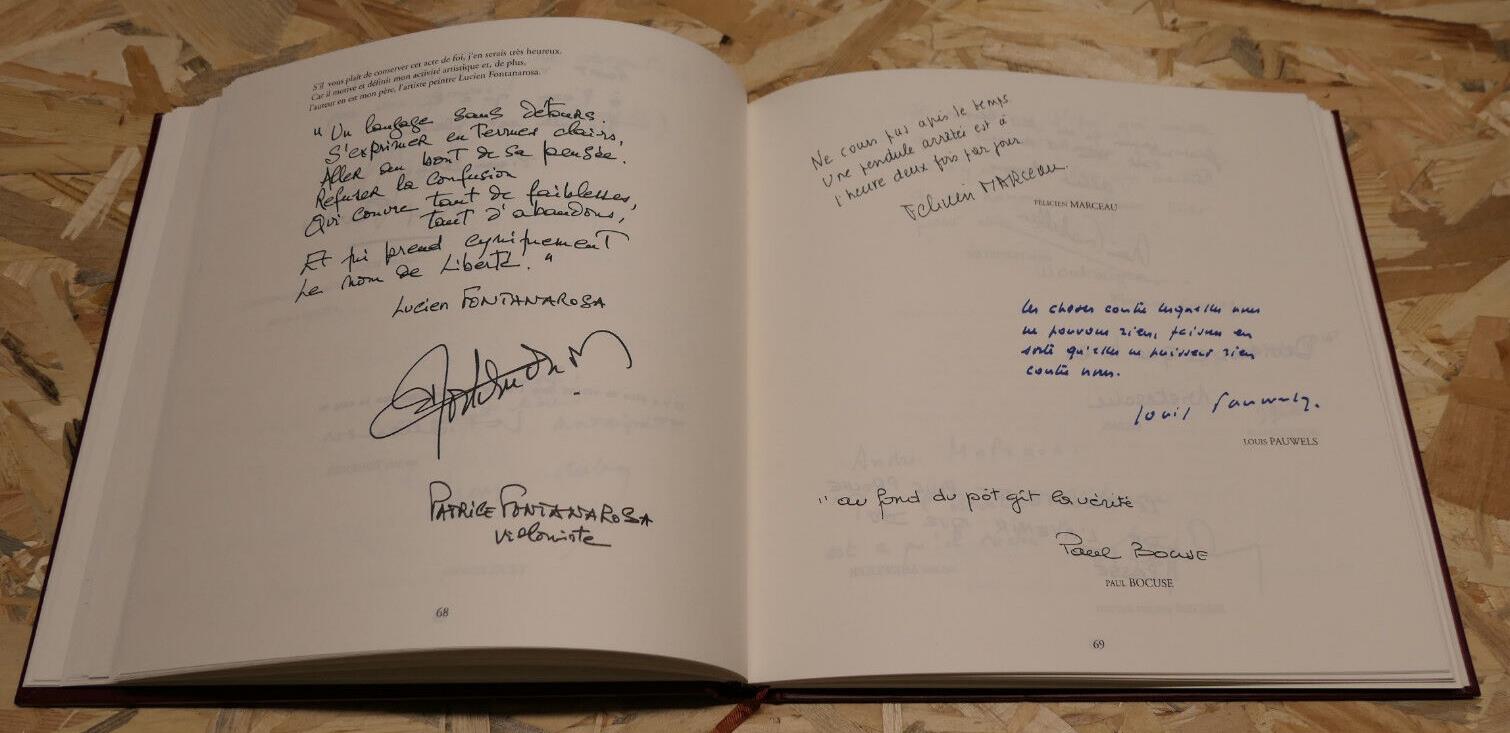 S'il vous plaît de conserver cet acte de foi, j'en serais très heureux.
Car il motive et définit mon activité artistique et, de plus,
l'auteur en est mon père, l'artiste peintre Lucien Fontanarosa.
"Un langage sans détours.
S'exprimer en termes clairs,
Aller au bout de sa pensée.
Refuser la confusion
Qui couvre tant de faiblesses,
tant d'abandons,
Et qui prend cyniquement
Le nom de Liberté."
Lucien FONTANAROSA
PATRICE FONTANAROSA
violoniste
68
Ne cours pas après le temps
Une pendule arrêtée est à
l'heure deux fois par jour
Felicien MARCEAU.
FELICIEN MARCEAU
Les choses contre lesquelles nous
ne pouvons rien, faisons en
sorte qu'elles ne puissent rien
contre nous.
Louis Pauwels.
LOUIS PAUWELS
"au fond du pôt gît la vérité
Paul BOCUSE
PAUL BOCUSE
69